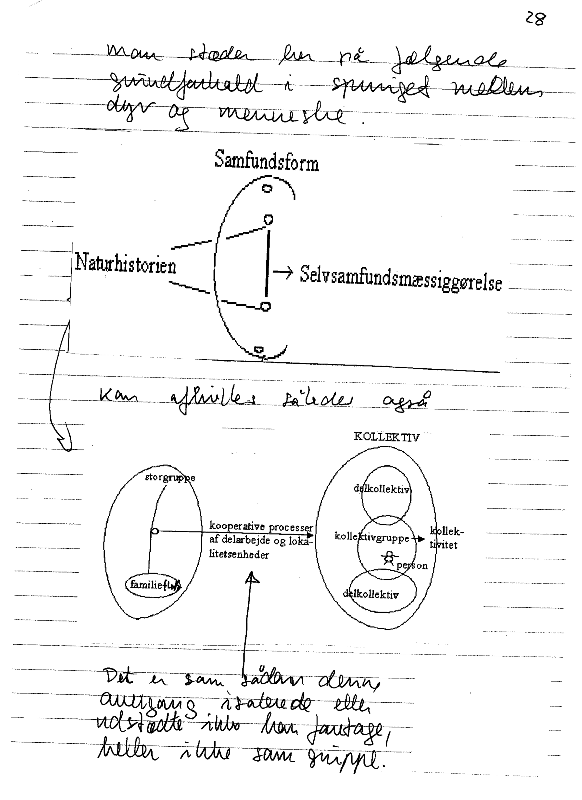 28
man støder her på følgende
grundforhold i springet mellem
dyr og menneske.
Samfundsform
Naturhistorien
Selvsamfundsmæssiggørelse
kan afbilles således også
KOLLEKTIV
storgruppe
delkollektiv
kooperative processer
af delarbejde og loka-
litetsenheder
kollektivgruppe
kollek-
tivitet
person
delkollektiv
Det er som sådan denne
overgang isolerede eller
udstødte ikke kan foretage,
heller ikke som gruppe.